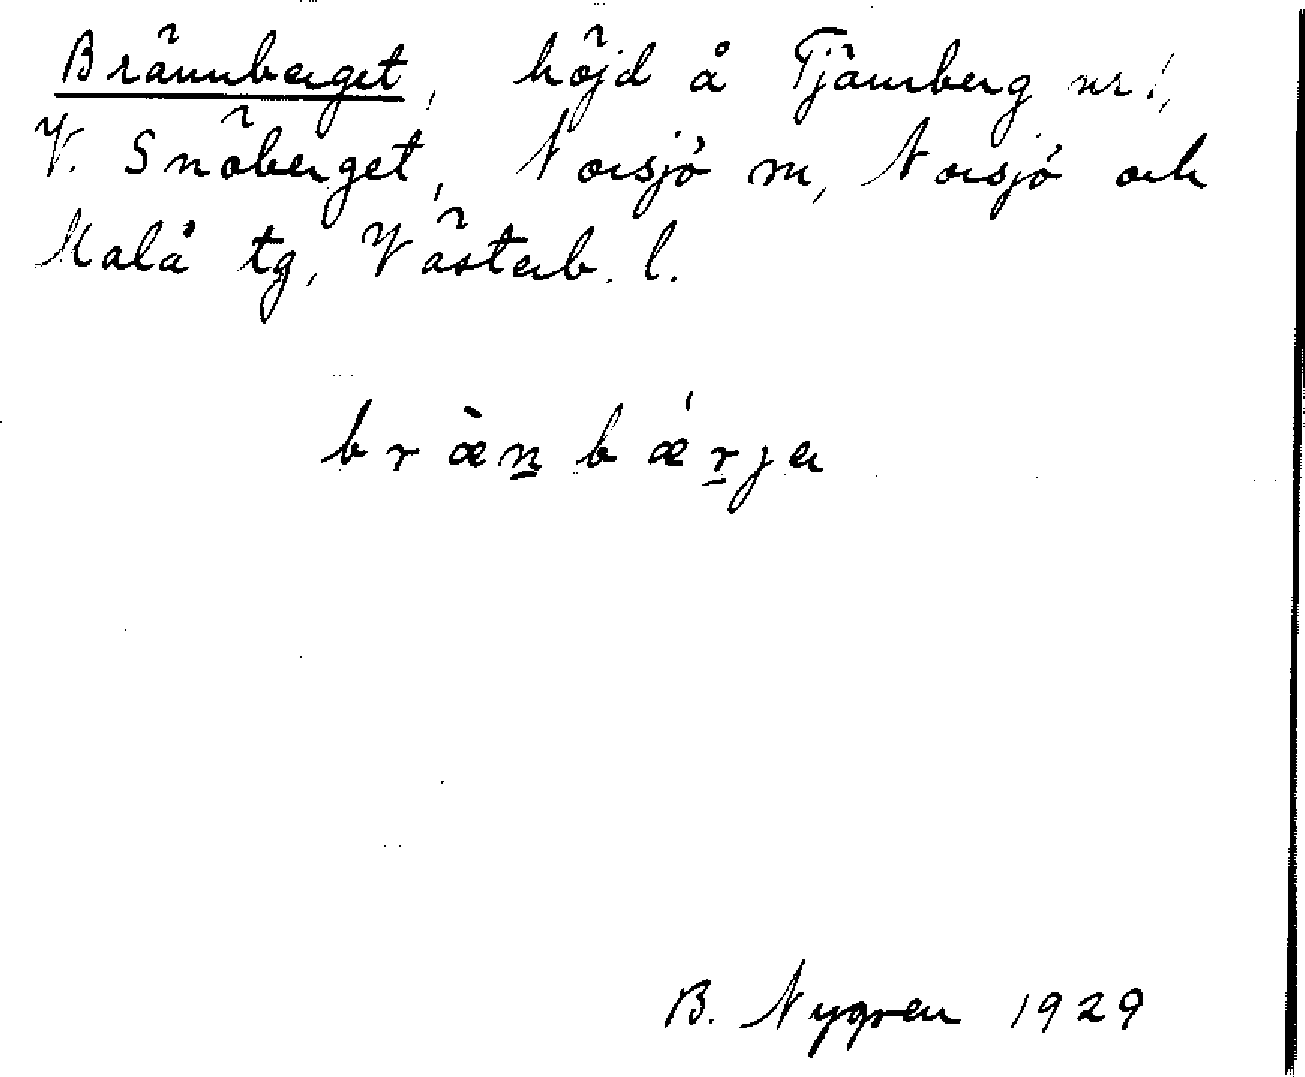 Brännberget, höjd å Tjärnberg nr 1,
V. Snöberget, Norsjö sn, Norsjö och
Malå tg, Västerb. l.
bræ̀n̲bǽr̲ja
B. Nygren 1929